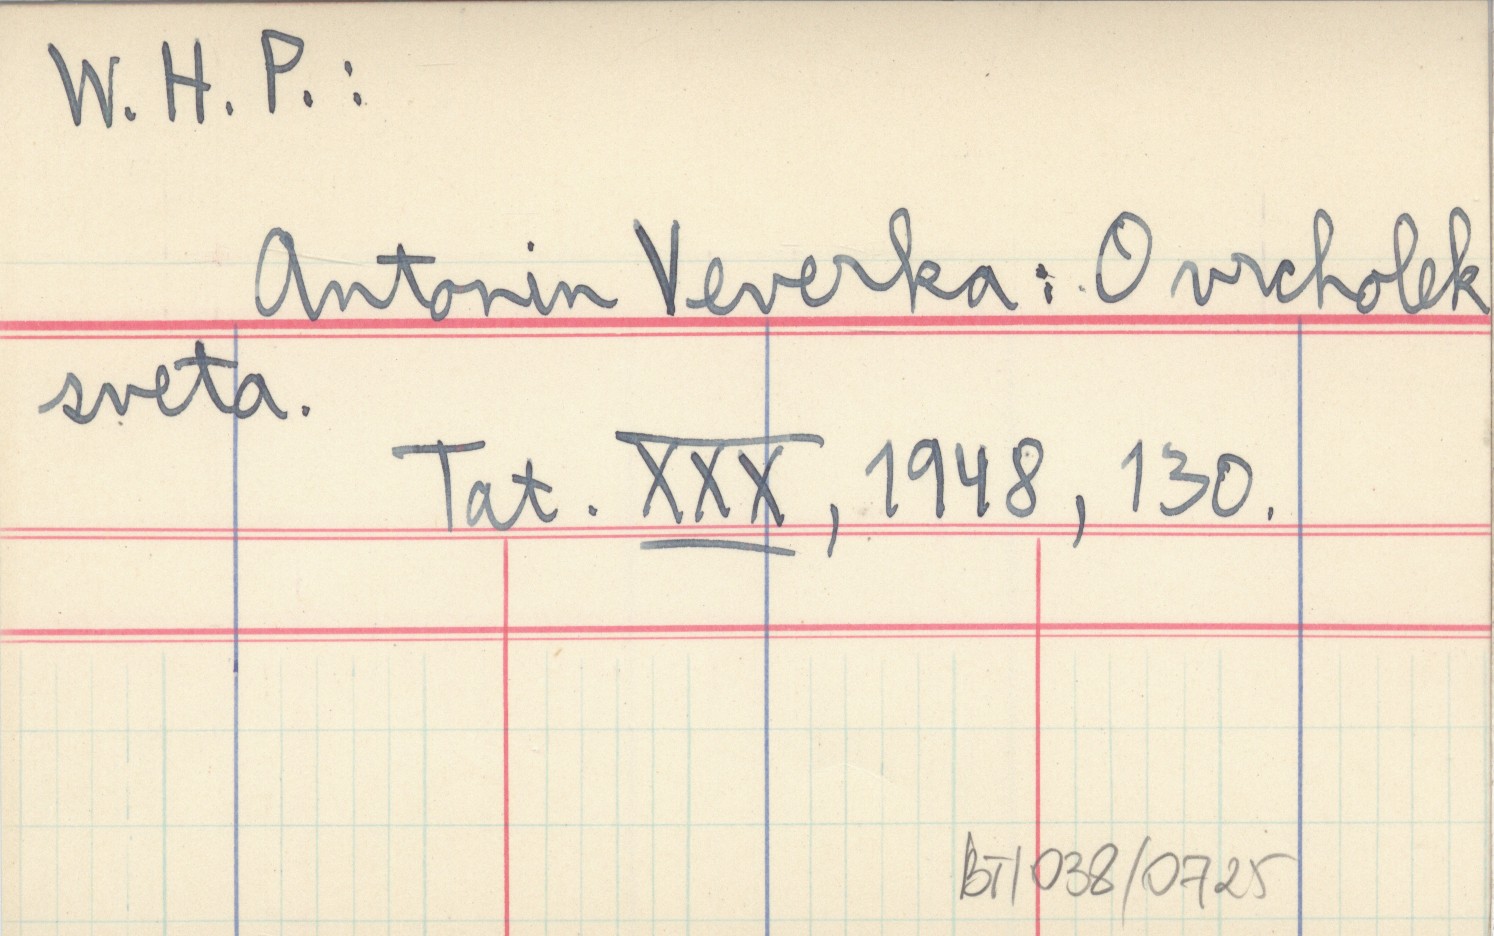 W. H. P. :
Antonin Veverka: O vrcholek
sveta.
Tat. XXX, 1948, 130.
BT/038/0725